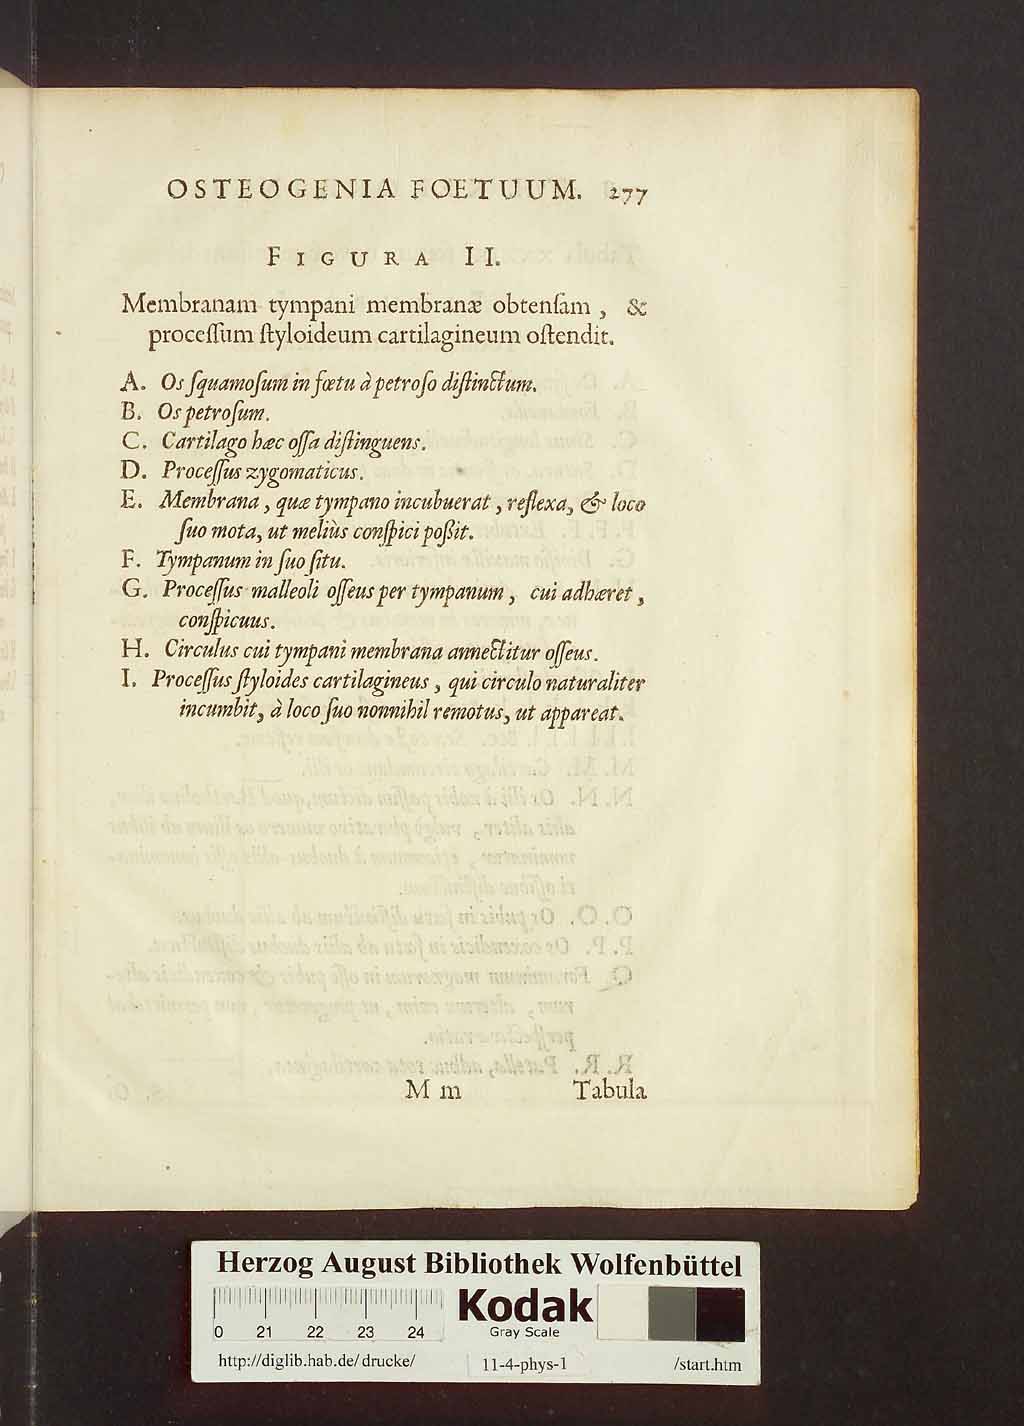 OSTEOGENIA FOETUUM. 277
FIGURA II.
Membranam tympani membranæ obtenſam, &
proceſſum ſtyloideum cartilagineum oſtendit.
A. Os ſquamoſum in fœtu à petroſo diſtinctum.
B. Os petroſum.
C. Cartilago hæc oſſa diſtinguens.
D. Proceſſus zygomaticus.
E. Membrana, quæ tympano incubuerat, reflexa, & loco
ſuo mota, ut meliùs conſpici poßit.
F. Tympanum in ſuo ſitu.
G. Proceſſus malleoli oſſeus per tympanum, cui adhæret,
conſpicuus.
H. Circulus cui tympani membrana annectitur oſſeus.
I. Proceſſus ſtyloides cartilagineus, qui circulo naturaliter
incumbit, à loco ſuo nonnihil remotus, ut appareat.
M m Tabula
Herzog August Bibliothek Wolfenbüttel
0 21 22 23 24
Kodak
Gray Scale
http://diglib.hab.de/drucke/ 11-4-phys-1 /start.htm